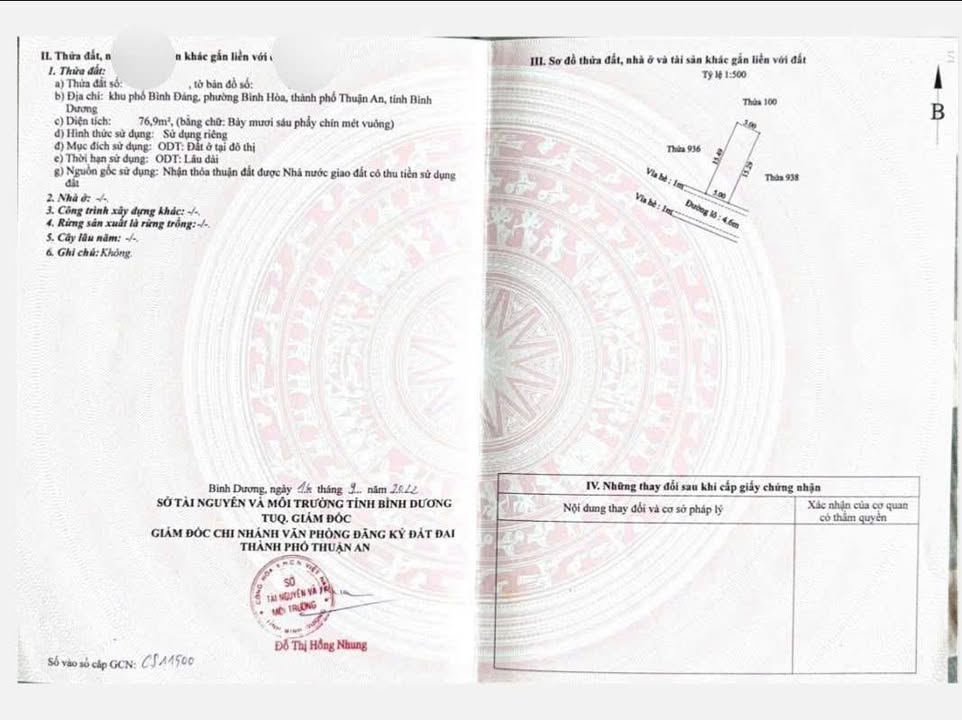 II. Thửa đất, n n khác gắn liền với
1. Thửa đất:
a) Thửa đất số: , tờ bản đồ số:
b) Địa chỉ: khu phố Bình Đáng, phường Bình Hòa, thành phố Thuận An, tỉnh Bình
Dương
c) Diện tích: 76,9m², (bằng chữ: Bảy mươi sáu phẩy chín mét vuông)
d) Hình thức sử dụng: Sử dụng riêng
đ) Mục đích sử dụng: ODT: Đất ở tại đô thị
e) Thời hạn sử dụng: ODT: Lâu dài
g) Nguồn gốc sử dụng: Nhận thỏa thuận đất được Nhà nước giao đất có thu tiền sử dụng
đất
2. Nhà ở: -/-.
3. Công trình xây dựng khác: -/-.
4. Rừng sản xuất là rừng trồng:-/-.
5. Cây lâu năm: -/-.
6. Ghi chú: Không.
Bình Dương, ngày 16 tháng 9 năm 2022
SỞ TÀI NGUYÊN VÀ MÔI TRƯỜNG TỈNH BÌNH DƯƠNG
TUQ. GIÁM ĐỐC
GIÁM ĐỐC CHI NHÁNH VĂN PHÒNG ĐĂNG KÝ ĐẤT ĐAI
THÀNH PHỐ THUẬN AN
SỞ
TÀI NGUYÊN VÀ
MÔI TRƯỜNG
TỈNH BÌNH DƯƠNG
Đỗ Thị Hồng Nhung
Số vào sổ cấp GCN: CS11500
III. Sơ đồ thửa đất, nhà ở và tài sản khác gắn liền với đất
Tỷ lệ 1:500
B
Thửa 100
5.00
Thửa 936
15.49
15.29
Thửa 938
Vỉa hè : 1m
5.00
Đường lộ : 4.6m
Vỉa hè : 1m
IV. Những thay đổi sau khi cấp giấy chứng nhận
Nội dung thay đổi và cơ sở pháp lý
Xác nhận của cơ quan
có thẩm quyền